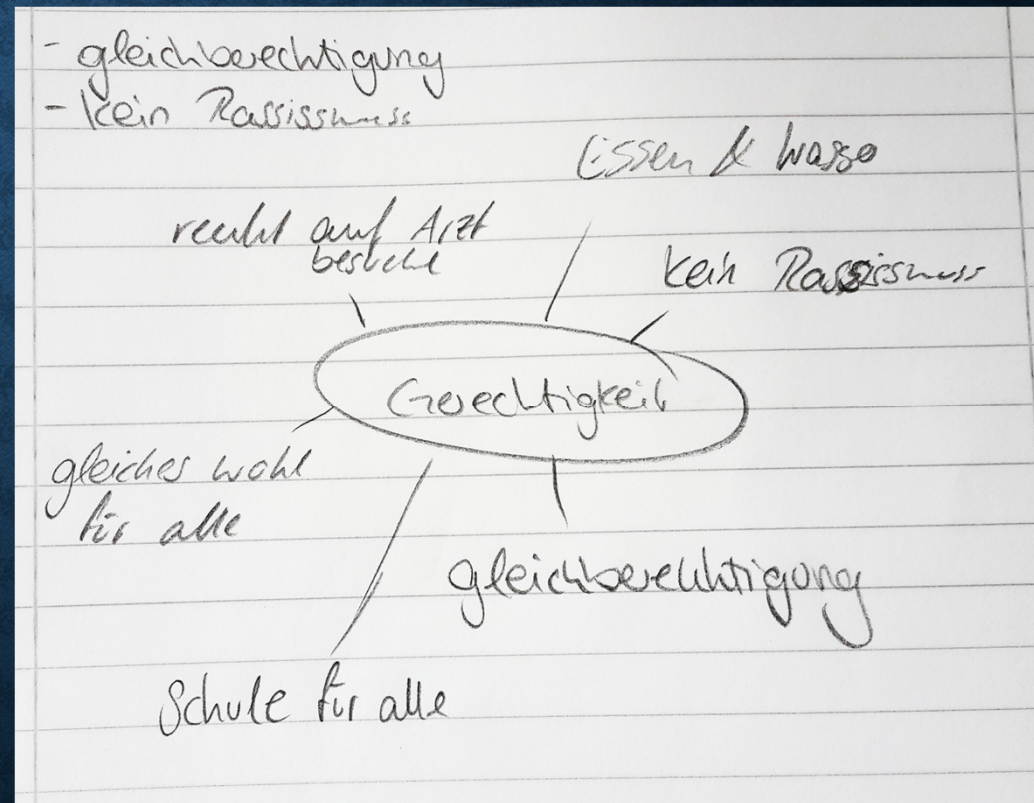 - gleichberechtigung
- kein Rassissmuss
Essen & Wasser
recht auf Arzt
besuche
kein Rassissmuss
Gerechtigkeit
gleiches wohl
für alle
gleichberechtigung
Schule für alle